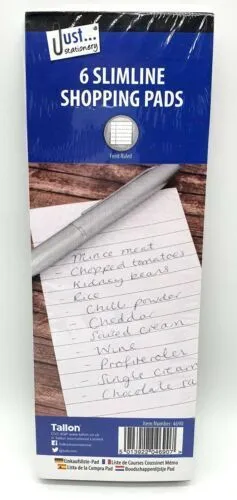 Just...
stationery
6 SLIMLINE
SHOPPING PADS
Feint Ruled
- Mince meat
- Chopped tomatoes
- Kidney beans
- Rice
- Chilli powder
- Cheddar
- Soured cream
- Wine
- Profiteroles
- Single cream
- Chocolate
Tallon
© Tallon International Limited
Item Number: 4690
Einkaufsliste-Pad
Liste de Courses Coussinet Mémo
Lista de la Compra Pad
Boodschappenlijstje Pad